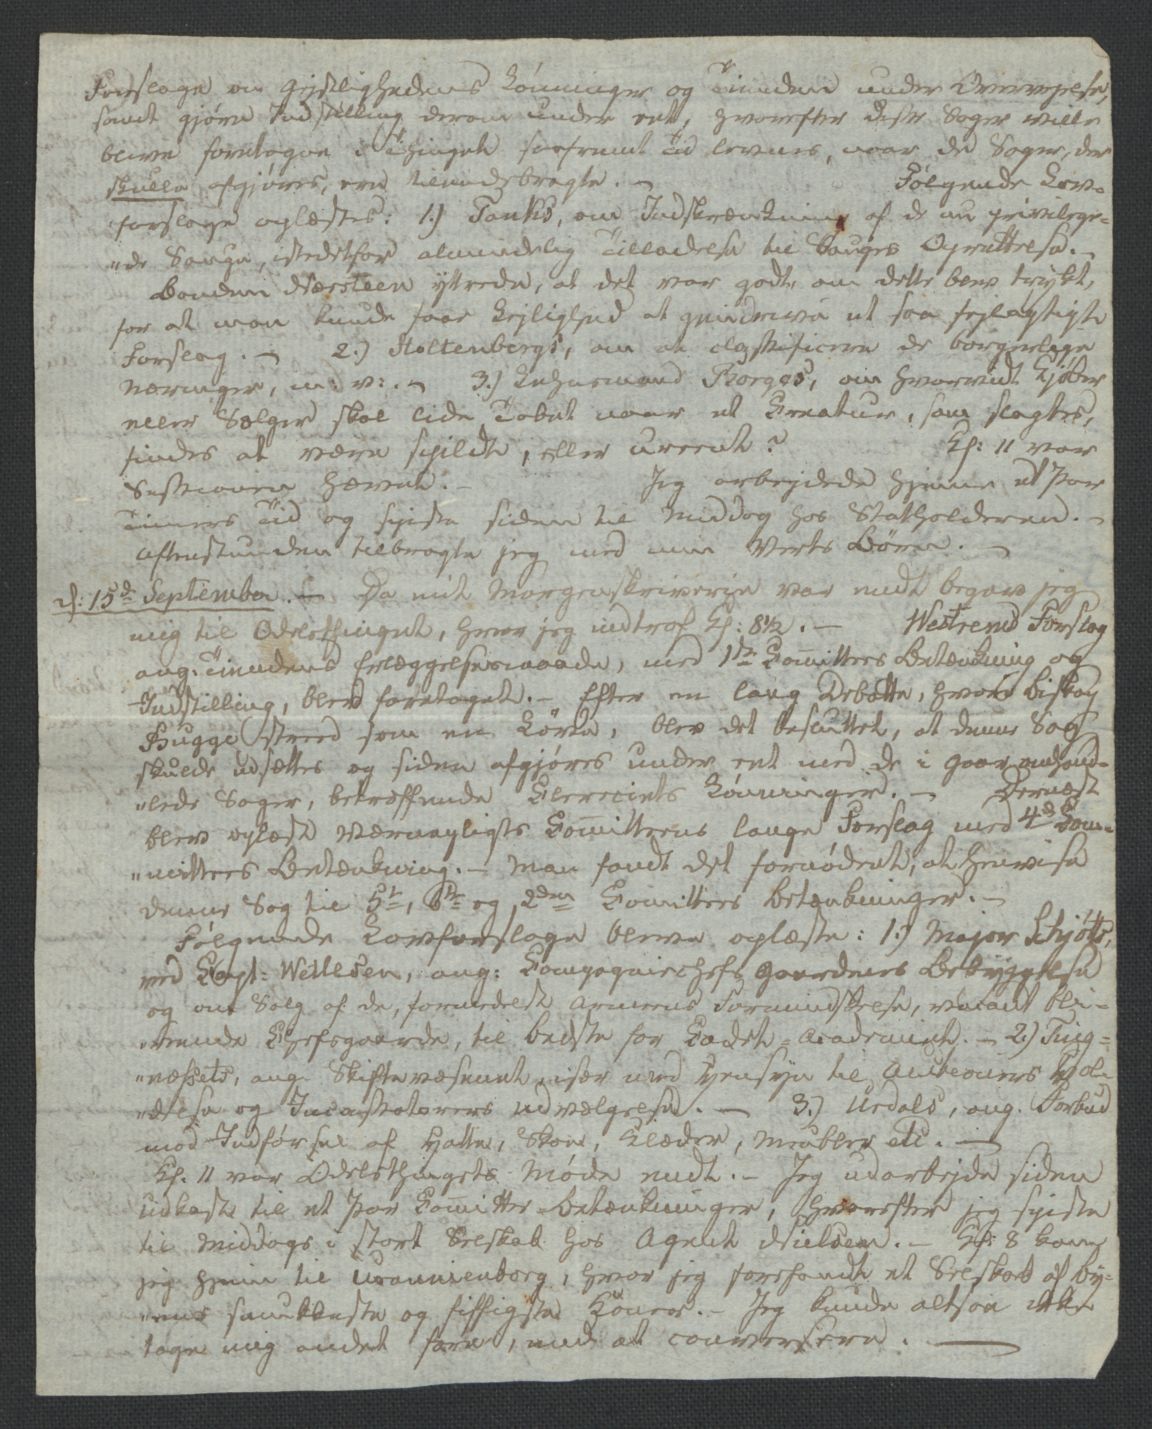 Forslage om Gejstlighedens Lønninger og Tienden under Overvejelse,
samt gjøre Indstilling derom under eet, hvorefter disse Sager ville
blive foretagne i Thinget saafremt Tid levnes, naar de Sager, der
skulle afgjøres, ere tilendebragte. — Følgende Lov-
forslage oplæstes: 1.) Tanks, om Indskrænkning af de nu privilege-
„de Sauge, istedetfor almindelig Tilladelse til Sauges Oprettelse. —
Bonden Næsteen yttrede, at det var godt, om dette blev trykt,
for at man kunde faae Lejlighed at gjendrive et saa fejlagtigt
Forslag. — 2.) Stoltenbergs, om at classificere de borgerlige
Næringer, m: v:. — 3.) Lehnsmand Borges, om hvorvidt Kjøber
eller Sælger skal lide Tabet naar et Creatur, som slagtes,
findes at være spildt, eller ureent? Kl: 11 var
Sessionen hævet. — Jeg arbejdede hjemme et Par
Timers Tid og spiste siden til Middag hos Statholderen. —
Aftenstunden tilbragte jeg med min Verts Børn. —
d: 15de September. — Da mit Morgenskriverie var endt begav jeg
mig til Odelsthinget, hvor jeg indtraf Kl: 8½. — Westrend Forslag
ang: Tiendens Erlæggelsesmaade, med 1ste Committees Betænkning og
Indstilling, blev foretaget. — Efter en lang Debatte, hvori Biskop
Bugge streed som en Løve, blev det besluttet, at denne Sag
skulde udsættes og siden afgjøres under eet med de i Gaar anhand-
„lede Sager, betreffende Clereciets Lønninger. — Dernæst
blev oplæst Værnepligts Committeens lange Forslag med 4de Com-
„mittees Betænkning. — Man fandt det fornødent, at henvise
denne Sag til 5te, 6te og 2den Committees Betænkninger. —
Følgende Lovforslage bleve oplæste: 1.) Major Schjøtts,
ved Capt: Wettesen, ang: Compagniechefs Gaardenes Bebyggelse
og om Salg af de, formedelst Armeens Formindskelse, vacant bli-
„vende Chefsgaarde, til bedste for Cadet-Academiet. — 2.) Ting-
„næssets, ang. Skiftevæsenet, især med Hensyn til Auctioners Hol-
„delse og Incassatorers Udvælgelse. — 3.) Urdals, ang. Forbud
mod Indførsel af Hatte, Skoe, Klæder, Meubler etc. —
Kl. 11 var Odelsthingets Møde endt. — Jeg udarbejde siden
Udkast til et Par Committee-Betænkninger, hvorefter jeg spiste
til Middags i stort Selskab hos Agent Nielsen. — Kl: 8 kom
jeg hjem til Uranienborg, hvor jeg forefandt et Selskab af By-
„ens smukkeste og fiffigste Koner. — Jeg kunde altsaa ikke
tage mig andet fore, end at conversere. —